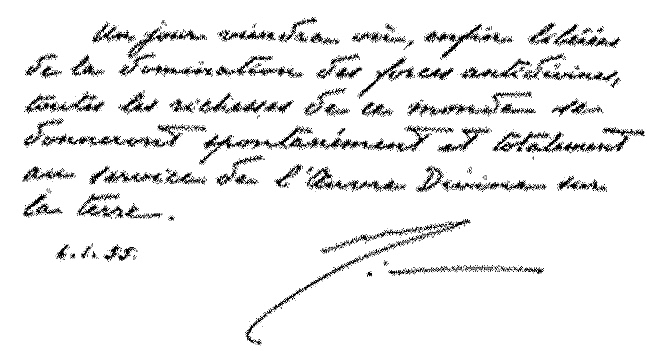 Un jour viendra où, enfin libérées
de la domination des forces antidivines,
toutes les richesses de ce monde se
donneront spontanément et totalement
au service de l'Œuvre Divine sur
la terre.
6.1.55.